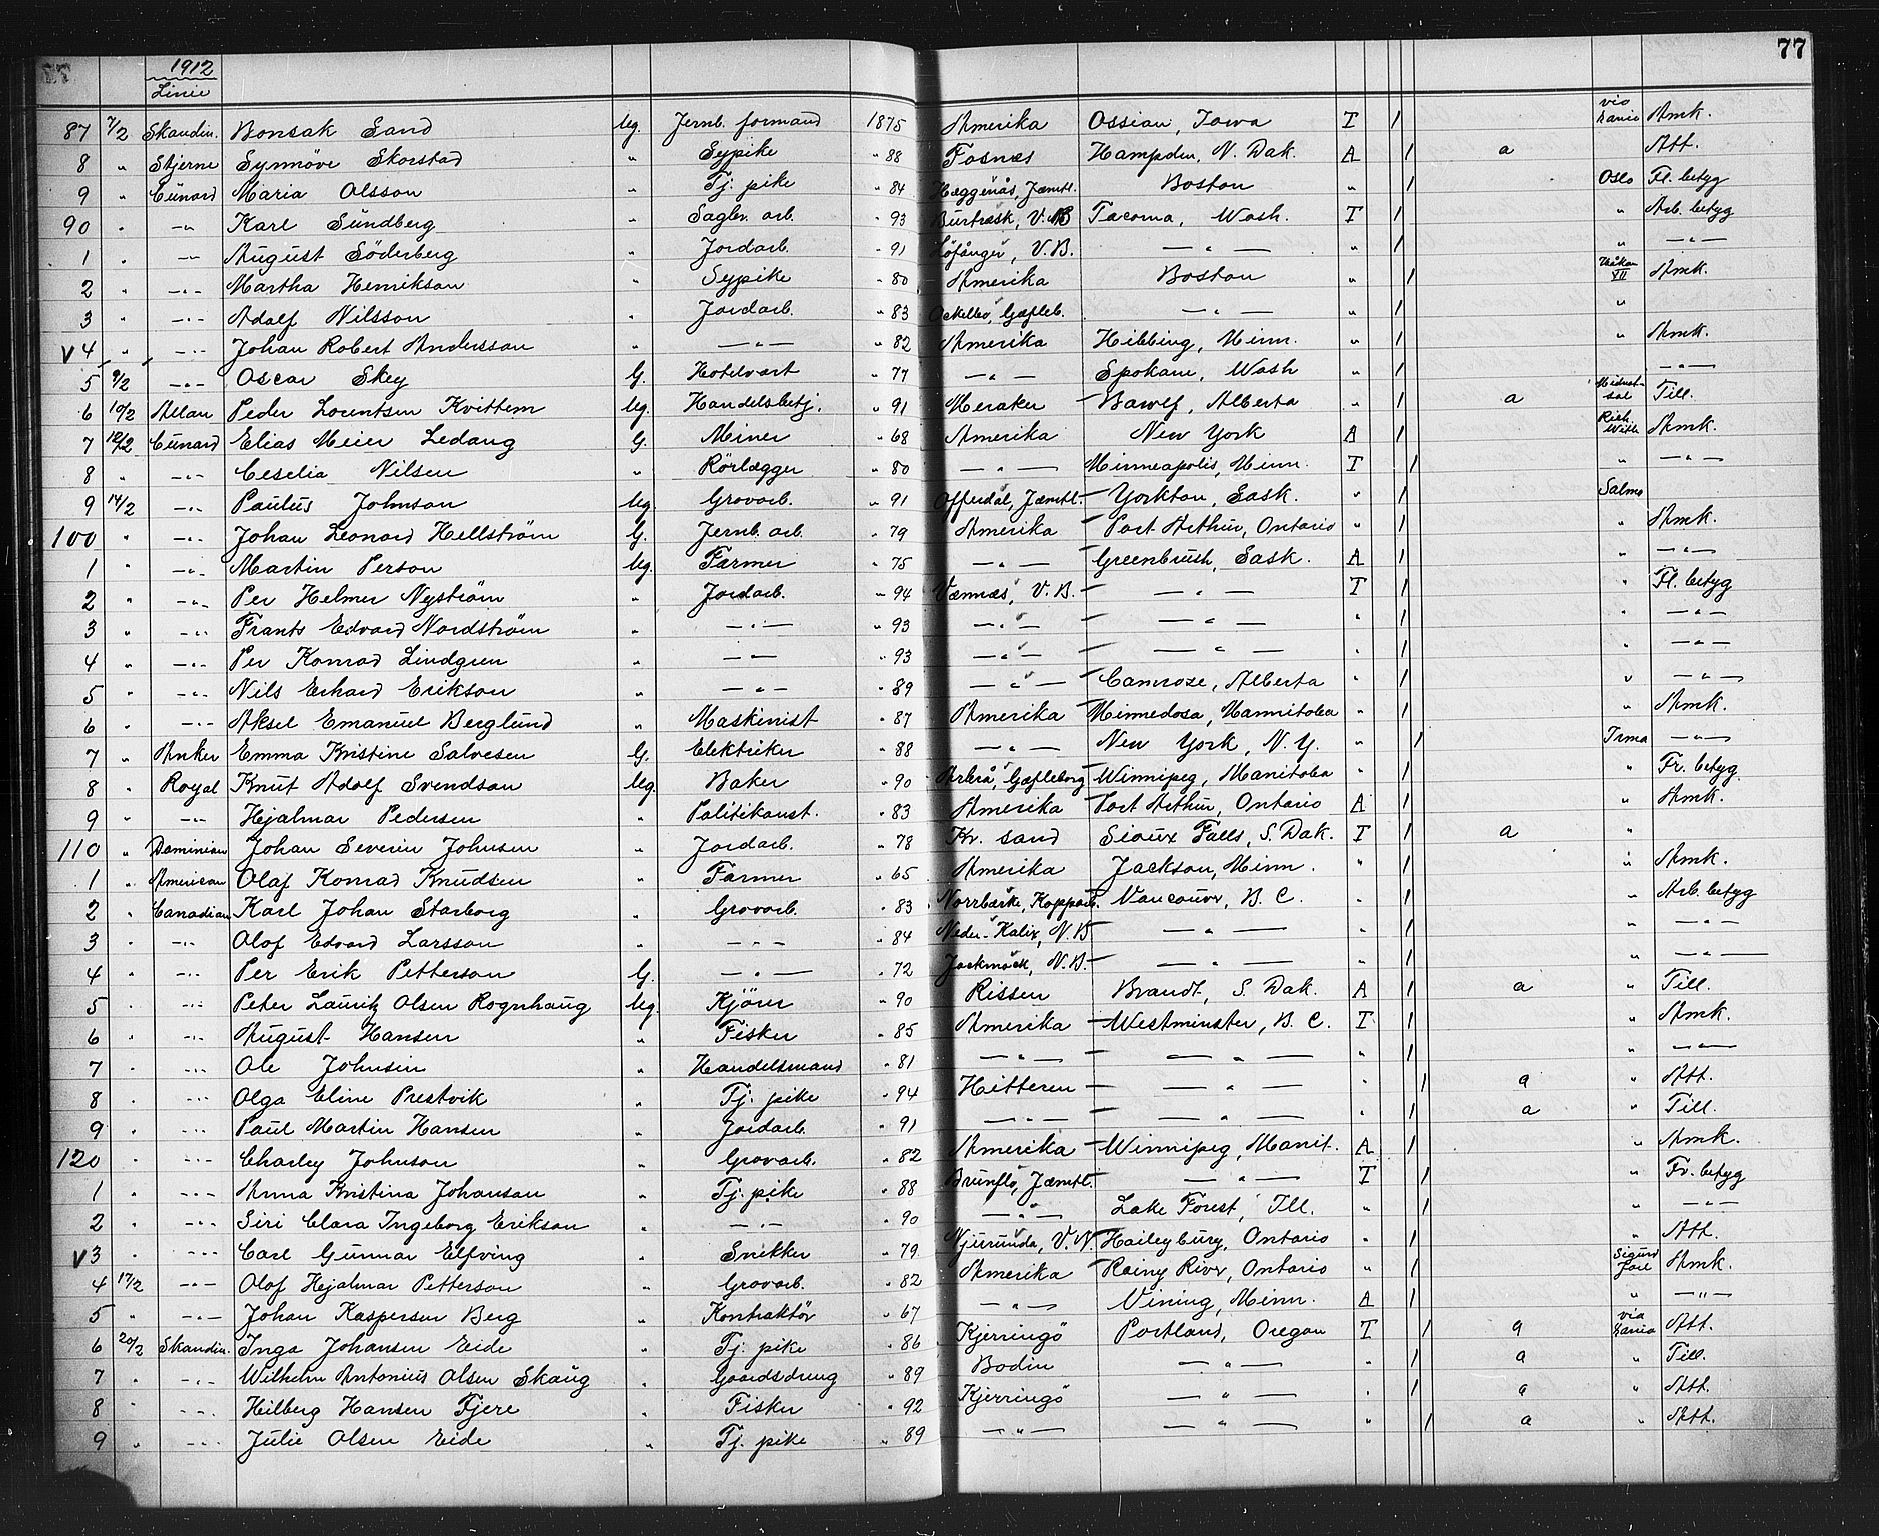 77 1912 77
Linie
87 7/2 Skandin. Bonsak Sand Ug. Jernb. formand 1875 Amerika Ossian, Iowa T 1 via Dania Amk.
8 " Stjerne Synnöve Skorstad " Sypike " 88 Fosnes Hampden, N. Dak. A 1 a Att.
9 " Cunard Maria Olsson " Tj. pike " 84 Häggenås, Jämtl. Boston " 1 Oslo Fl. betyg
90 " -"- Karl Sundberg " Sagbr. arb. " 93 Burträsk, V.B Tacoma, Wash. T 1 " Arb. betyg
1 " -"- August Söderberg " Jordarb. " 91 Löfånger, V.B. -"- " 1 " -"-
2 " -"- Martha Henrikson " Sypike " 80 Amerika Boston " 1 Håkon VII Amk.
3 " -"- Adolf Nilsson " Jordarb. " 83 Ockelbo, Gefleb. -"- " 1 "
V 4 " -"- Johan Robert Andersson " -"- " 82 Amerika Hibbing, Minn. " 1 " Amk.
5 9/2 -"- Oscar Skey G. Hotelvært " 77 -"- Spokane, Wash " 1 -"-
6 10/2 Allan Peder Lorentsen Kvittem Ug. Handelsbetj. " 91 Meraker Bawlf, Alberta " 1 a Till.
7 12/2 Cunard Elias Meier Ledang G. Miner " 68 Amerika New York A 1 Rich. With Amk.
8 " -"- Ceselia Nilsen " Rörlægger " 80 -"- Minneapolis, Minn. T 1 " -"-
9 14/2 -"- Paulus Johnson Ug. Grovarb. " 91 Offerdal, Jæmtl. Yorkton, Sask. " 1 Salmo
100 " -"- Johan Leonard Hellström G. Jernb. arb. " 79 Amerika Port Arthur, Ontario " 1 " Amk.
1 " -"- Martin Person Ug. Farmer " 75 -"- Greenbush, Sask. A 1 " -"-
2 " -"- Per Helmer Nyström " Jordarb. " 94 Vännäs, V.B. -"- T 1 " Fl. betyg
3 " -"- Frants Edvard Nordström " -"- " 93 -"- -"- " 1 " -"-
4 " -"- Per Konrad Lindgren " -"- " 93 -"- -"- " 1 " -"-
5 " -"- Nils Erhard Erikson " -"- " 89 -"- Camrose, Alberta " 1 " -"-
6 " -"- Aksel Emanuel Berglund " Maskinist " 87 Amerika Minnedosa, Mannitoba " 1 " Amk.
7 " Anker Emma Kristine Salvesen G. Elektriker " 88 -"- New York, N.Y. " 1 Irma -"-
8 " Royal Knut Adolf Svendsen Ug. Baker " 90 Arbrå, Gæfleborg Winnipeg, Manitoba " 1 " Fr. betyg.
9 " -"- Hjalmar Pedersen " Politikonst. " 83 Amerika Port Arthur, Ontario A 1 " Amk.
110 " Dominian Johan Severin Johnsen " Jordarb. " 78 Kr. sand Sioux Falls, S. Dak. T 1 a "
1 " American Olaf Konrad Knudsen " Farmer " 65 Amerika Jackson, Minn. " 1 " Amk.
2 " Canadian Karl Johan Starborg " Grovarb. " 83 Norrbärke, Kopparb. Vancouver, B.C. " 1 " Arb. betyg
3 " -"- Olof Edvard Larsson " -"- " 84 Neder-Kalix, N.B -"- " 1 " -"-
4 " -"- Per Erik Petterson G. -"- " 72 Jockmock, N.B. -"- " 1 " -"-
5 " -"- Peter Lauritz Olsen Rognhaug Ug. Kjörer " 90 Rissen Brandt, S. Dak. A 1 a " Till.
6 " -"- August Hansen " Fisker " 85 Amerika Westminster, B.C. T 1 " Amk.
7 " -"- Ole Johnsen " Handelsmand " 81 -"- -"- " 1 " -"-
8 " -"- Olga Eline Prestvik " Tj. pike " 94 Hitteren -"- " 1 a " Att.
9 " -"- Paul Martin Hansen " Jordarb. " 91 -"- -"- " 1 a " Till.
120 " -"- Charley Johnson " Grovarb. " 82 Amerika Winnipeg, Manit. A 1 " Amk.
1 " -"- Anna Kristina Johanson " Tj. pike " 88 Brunflo, Jæmtl. -"- T 1 " Fr. betyg
2 " -"- Siri Clara Ingeborg Erikson " -"- " 90 -"- Lake Forest, Ill. " 1 " -"-
V 3 " -"- Carl Gunnar Elfving " Snikker " 79 Njurunda, V.N. Haileybury, Ontario " 1 " Att.
4 17/2 -"- Olof Hjalmar Petterson " Grovarb. " 82 Amerika Rainy River, Ontario " 1 Sigurd Jarl Amk.
5 " -"- Johan Kaspersen Berg " Kontraktör " 67 -"- Vining, Minn. A 1 " -"-
6 20/2 Skandin. Inga Johansen Eide " Tj. pike " 86 Kjerringö Portland, Oregon T 1 a via Dania Att.
7 " -"- Wilhelm Antonius Olsen Skaug " Gaardsdreng " 89 Bodin -"- " 1 a " Till.
8 " -"- Hilberg Hansen Fjere " Fisker " 92 Kjerringö -"- " 1 a " Att.
9 " -"- Julie Olsen Eide " Tj. pike " 89 -"- -"- " 1 a " Att.